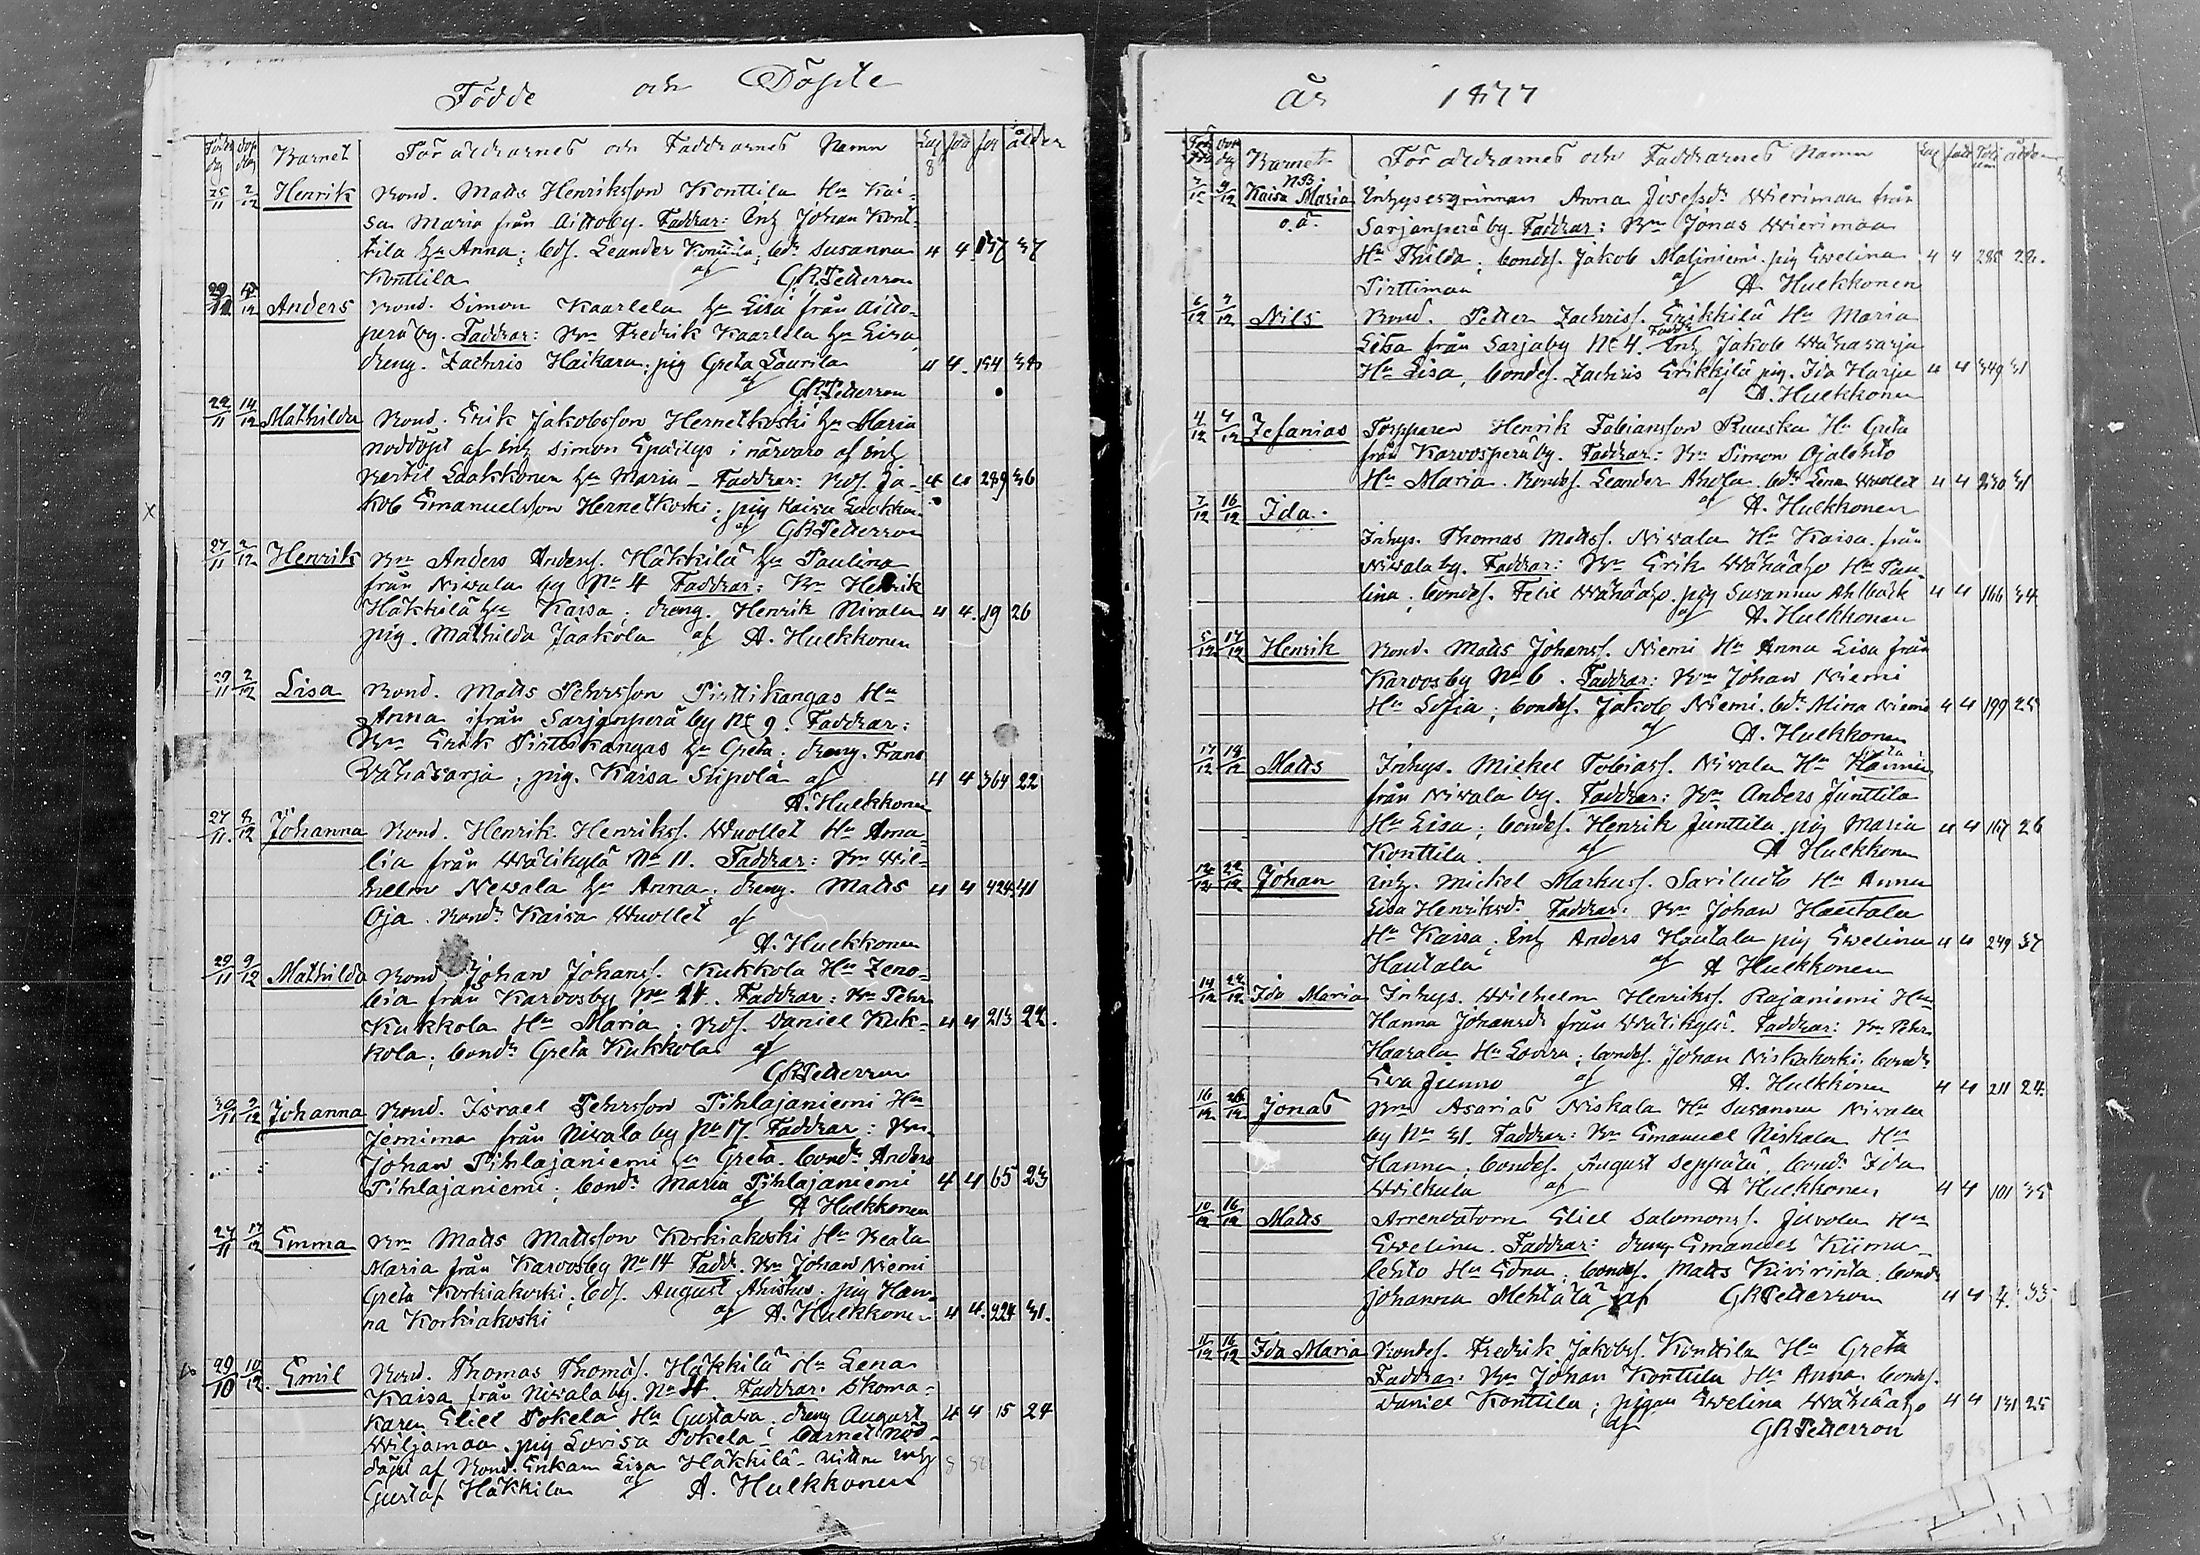 Födde och Döpte
Födelse dag döp dag Barnet Föräldrarnes och Faddrarnes Namn ålder
25/11 2/12 Henrik Bond. Matts Henriksson Konttila Hu Kai-
sa Maria från Aittoby. Faddrar: Inh Johan Kont-
tila hu Anna; bds. Leander Konttila; bdr Susanna 4 4 137 37
Konttila af GR Petterson
29/11 12 Anders Bond. Simon Kaarlela hu Lisa från Aitto-
perä by. Faddrar: Bn Fredrik Kaarlela hu Lisa,
dreng. Zachris Haikara, pig Greta Laurila 4 4 154
af GR Petterson
22/11 14/12 Mathilda Bond. Erik Jakobsson Hernetkoski hu Maria
nöddöpt af Inh Simon i närvaro af Inh
Bertil Laakkonen hu Maria - Faddrar: Bds. Ja- 4 289 36
kob Emanuelsson Hernetkoski; pig Kaisa
af GR Petterson
27/11 2/12 Henrik Bn Anders Anderss. Häkkilä hu Paulina
från Niwala by No 4 Faddrar: Bn Henrik
Häkkilä hu Kaisa; dreng. Henrik Nivala 4 4 19 26
pig. Mathilda Jaakola af A. Hulkkonen
29/11 2/12 Lisa Bond. Matts Pehrsson Pirttikangas Hu
Anna ifrån Sarjanperä by No 9. Faddrar:
Bn Erik Pirttikangas hu Greta; dreng. Frans
Vähäsarja; pig. Kaisa Siipola af 4 4 364 22
A. Hulkkonen
27/11 8/12 Johanna Bond. Henrik Henrikss. Wuollet Hu Ama-
lia från Wälikylä No 11. Faddrar: Bn Wil-
helm Newala hu Anna; dreng. Matts 4 4 424 41
Oja. Bondr Kaisa Wuollet af
A. Hulkkonen
29/11 9/12 Mathilda Bond Johan Johanss. Kukkola Hu Zeno-
bia från Karvosby No 24. Faddrar: Bn Pehr
Kukkola Hu Maria; Bds. Daniel Kuk- 4 4 213 22.
kola; bondr Greta Kukkola af
GR Petterson
30/11 9/12 Johanna Bond. Israel Pehrsson Pihlajaniemi Hu
Jemima från Nivala by No 17. Faddrar: Bn
Johan Pihlajaniemi hu Greta. bonds Anders
Pihlajaniemi; bondr Maria Pihlajaniemi 4 4 65 23
af A Hulkkonen
27/11 17/12 Emma Bn Matts Mattsson Korkiakoski Hu Beata
Maria från Karvosby No 14 Fadd. Bn Johan Niemi
Greta Korkiakoski; bds. August Ahistus; pig Han-
na Korkiakoski af A. Hulkkonen 4 4 224 31.
29/10 10/12 Emil Bond. Thomas Thomass. Häkkilä Hu Lena
Kaisa från Nivala by. No 4. Faddrar: Skoma-
karen Eliel Tokela Hu Gustava; dreng August 4 4 15 24
Wiljamaa. pig Lovisa Tokela; barnet nöd-
döpt af Bond. Enkan Lisa Häkkilä - vittne Inh
Gustaf Häkkilä af A. Hulkkonen
år 1877
Barnet Föräldrarnes och Faddrarnes Namn ålder
9/12 NB. Kaisa Maria Inhysesqvinnan Anna Josefsdr Wierimaa från
o.ä. Sarjanperä by. Faddrar: Bn Jonas Wierimaa
Hu Thilda; bondes. Jakob Maliniemi. pig Ewelina 4 4 285 22.
Pirttimaa af A. Hulkkonen
6/12 9/12 Nils Bond. Petter Zachriss. Erikkilä Hu Maria
Lisa från Sarjaby No 4. Faddr Inh Jakob Wähäsarja
Hu Lisa, bondes. Zachris Erikkilä pig. Ida Harju 4 4 349 31
af A. Hulkkonen
4/12 9/12 Zefanias Torpparen Henrik Fabiansson Ruuska Hu Greta
från Karvosperä by. Faddrar: Bn Simon Ojalehto
Hu Maria. Bondes. Leander Ahola. bdr Lena Wuollet 4 4 230 31
af A. Hulkkonen
7/12 16/12 Ida.
Inhys. Thomas Matss. Nivala Hu Kaisa från
Nivala by. Faddrar: Bn Erik Wähäaho Hu Pau-
lina; bondes. Felix Wähäaho. pig Susanna Ahlbäck 4 4 166 34
af A. Hulkkonen
5/12 17/12 Henrik Bond. Matts Johanss. Niemi Hu Anna Lisa från
Karvosby No 6. Faddrar: Bn Johan Niemi
Hu Sofia; bondes. Jakob Niemi. bdr Mina Niemi 4 4 199 25
af A. Hulkkonen
17/12 19/12 Matts Inhys. Mickel Tobiass. Nivala Hu
från Nivala by. Faddrar: Bn Anders Junttila
Hu Lisa; bondes. Henrik Junttila. pig Maria 4 4 167 26
Konttila. af A Hulkkonen
12/12 22/12 Johan Inh. Mickel Markuss. Saviluoto Hu Anna
Lisa Henriksdr. Faddrar: Bn Johan Hautala
Hu Kaisa; Inh Anders Hautala pig Ewelina 4 4 249 37
Hautala af A Hulkkonen
14/12 22/12 Ida Maria Inhys. Wilhelm Henrikss. Rajaniemi Hu
Hanna Johansdr från Wälikylä. Faddrar: Bn Pehr
Haarala Hu Lovisa; bondes. Johan Niskakoski; bondr
Eva Junno af A. Hulkkonen 4 4 211 24.
16/12 26/12 Jonas Bn Asarias Niskala Hu Susanna Nivala
by No 31. Faddrar: Bn Emanuel Niskala Hu
Hanna; bondes. August Seppälä; bondr Ida
Wilkula af A Hulkkonen 4 4 101 35
10/12 16/12 Matts Arrendatorn Eliel Salomonss. Juvola Hu
Ewelina. Faddrar: dreng Emanuel Kiima-
lehto Hu Edna; bondes. Matts Kiviranta; bondr
Johanna Mehtälä af GR Petterson 4 4 7. 33
11/12 16/12 Ida Maria Bondes. Fredrik Jakobss. Konttila Hu Greta
Faddrar: Bn Johan Konttila Hu Anna bondes.
Daniel Konttila; pigan Ewelina Wähäaho 4 4 131 25
af GR Petterson